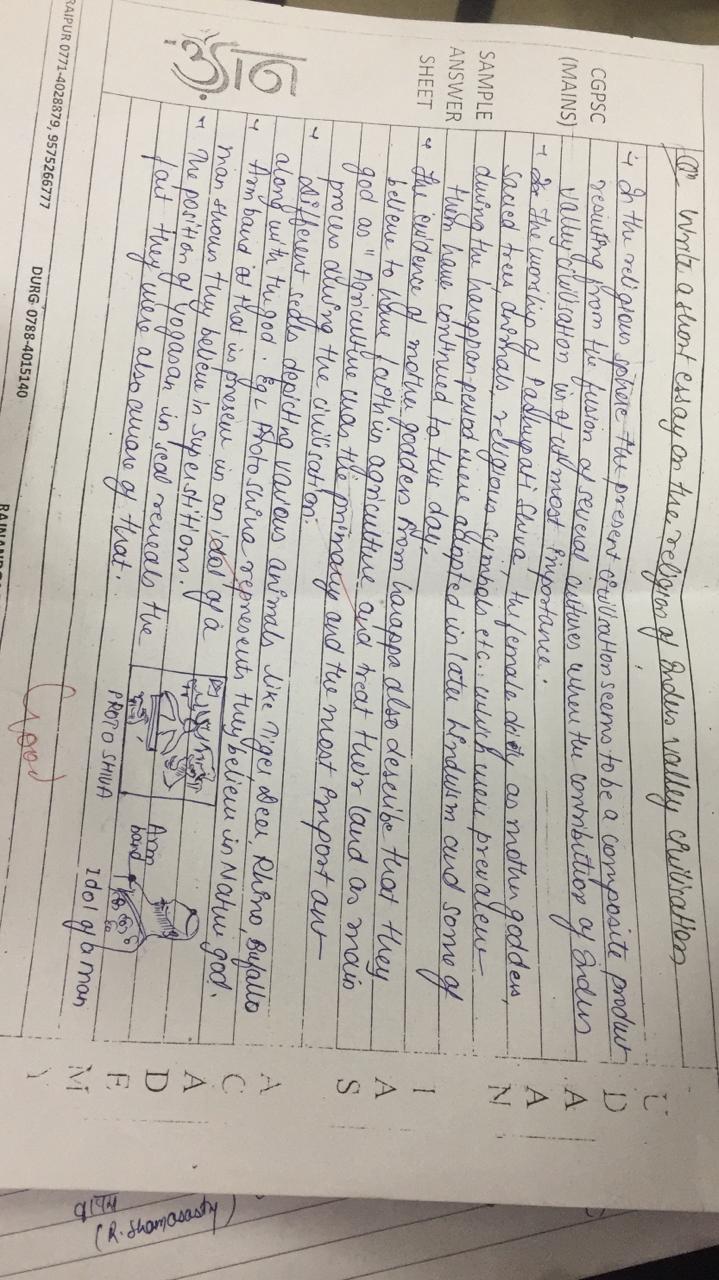 Q. Write a short essay on the religion of Indus valley civilisation.
→ In the religious sphere the present civilisation seems to be a composite product
resulting from the fusion of several cultures when the contribution of Indus
valley civilisation is of utmost importance.
→ In the worship of Pashupati Shiva, the female diety as mother goddess,
sacred trees, animals, religious symbols etc.. which were prevalent
during the harappan period were adopted in later hinduism and some of
them have continued to this day.
→ The evidence of mother goddess from harappa also describe that they
believe to have faith in agriculture and treat their land as main
god as "Agriculture was the primary and the most important
process during the civilisation.
→ Different seals depicting various animals like Tiger, Deer, Rhino, Buffallo
along with the god. Eg:- Protoshiva represents they believe in Nature god.
→ Arm band at that is present in an idol of a
man shows they believe in superstitions.
→ The position of yogasan in seal reveals the
fact they were also aware of that.
PROTO SHIVA
Arm
band
Idol of a man
Good
CGPSC
(MAINS)
SAMPLE
ANSWER
SHEET
U
D
A
A
N
I
A
S
A
C
A
D
E
M
Y
RAIPUR 0771-4028879, 9575266777
DURG 0788-4015140
(R. Shamasastry)